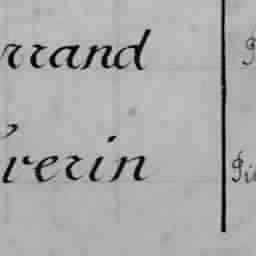 rrand
verin